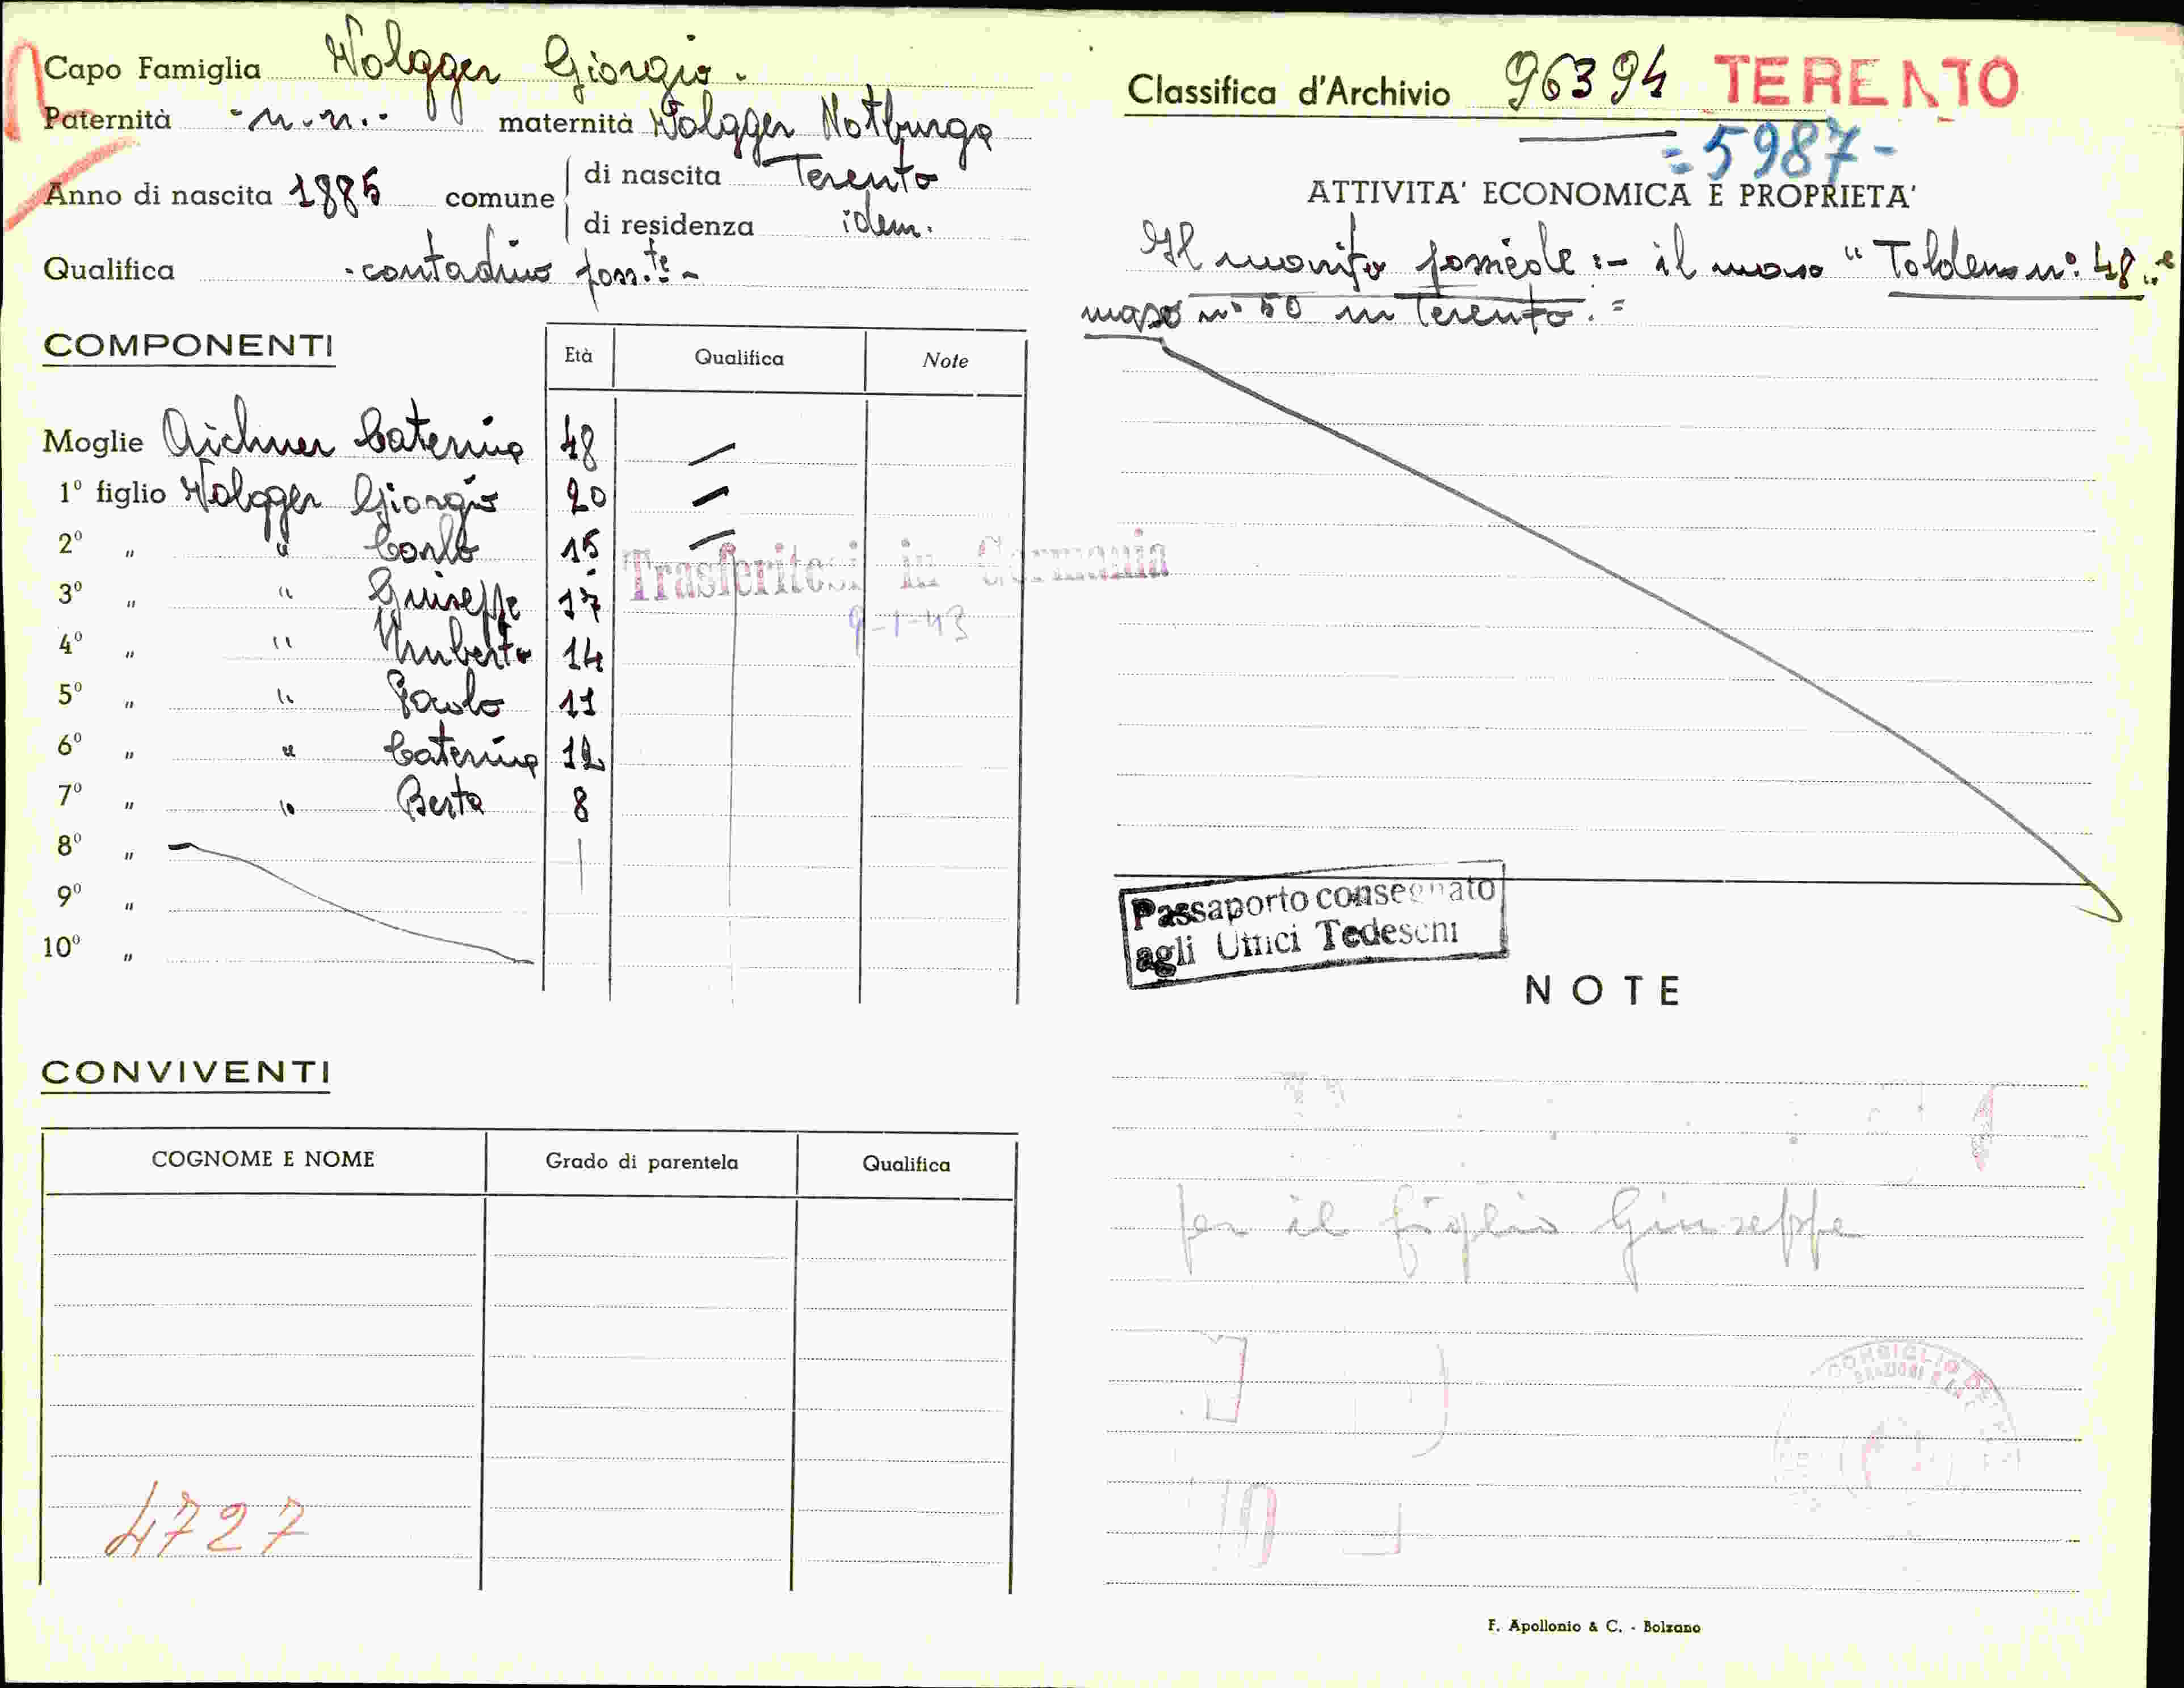 Capo Famiglia Volgger Giorgio.
Paternità - n. n. - maternità Volgger Notburga
Anno di nascita 1885 comune di nascita Terento
di residenza idem.
Qualifica - contadino poss.te -
COMPONENTI
Età Qualifica Note
Moglie Aichner Caterina 48
1º figlio Volgger Giorgio 20
2º " " Carlo 15
3º " " Giuseppe 17
4º " " Umberto 14
5º " " Paolo 11
6º " " Caterina 12
7º " " Berta 8
8º "
9º "
10º "
Trasferitosi in Germania
9-1-43
CONVIVENTI
COGNOME E NOME Grado di parentela Qualifica
4727
Classifica d'Archivio 96394 TERENTO
= 5987 -
ATTIVITA' ECONOMICA E PROPRIETA'
Il marito possiede :- il maso " n.º 48 " e
maso nº 50 in Terento. =
Passaporto consegnato
agli Uffici Tedeschi
NOTE
per il figlio Giuseppe
CONSIGLIO
F. Apollonio & C. - Bolzano